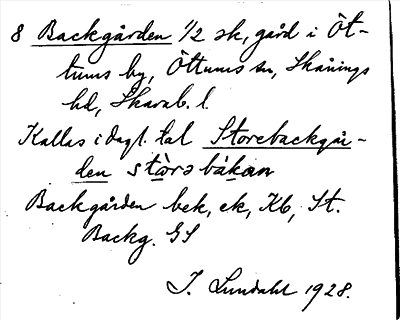 8 Backgården 1/2 sk, gård i Öt-
tums by, Öttums sn, Skånings
hd, Skarab. l.
Kallas i dagl. tal Storebackgår-
den stòrə bákan
Backgården bek, ek, Kb, St.
Backg. GS
J. Lundahl 1928.